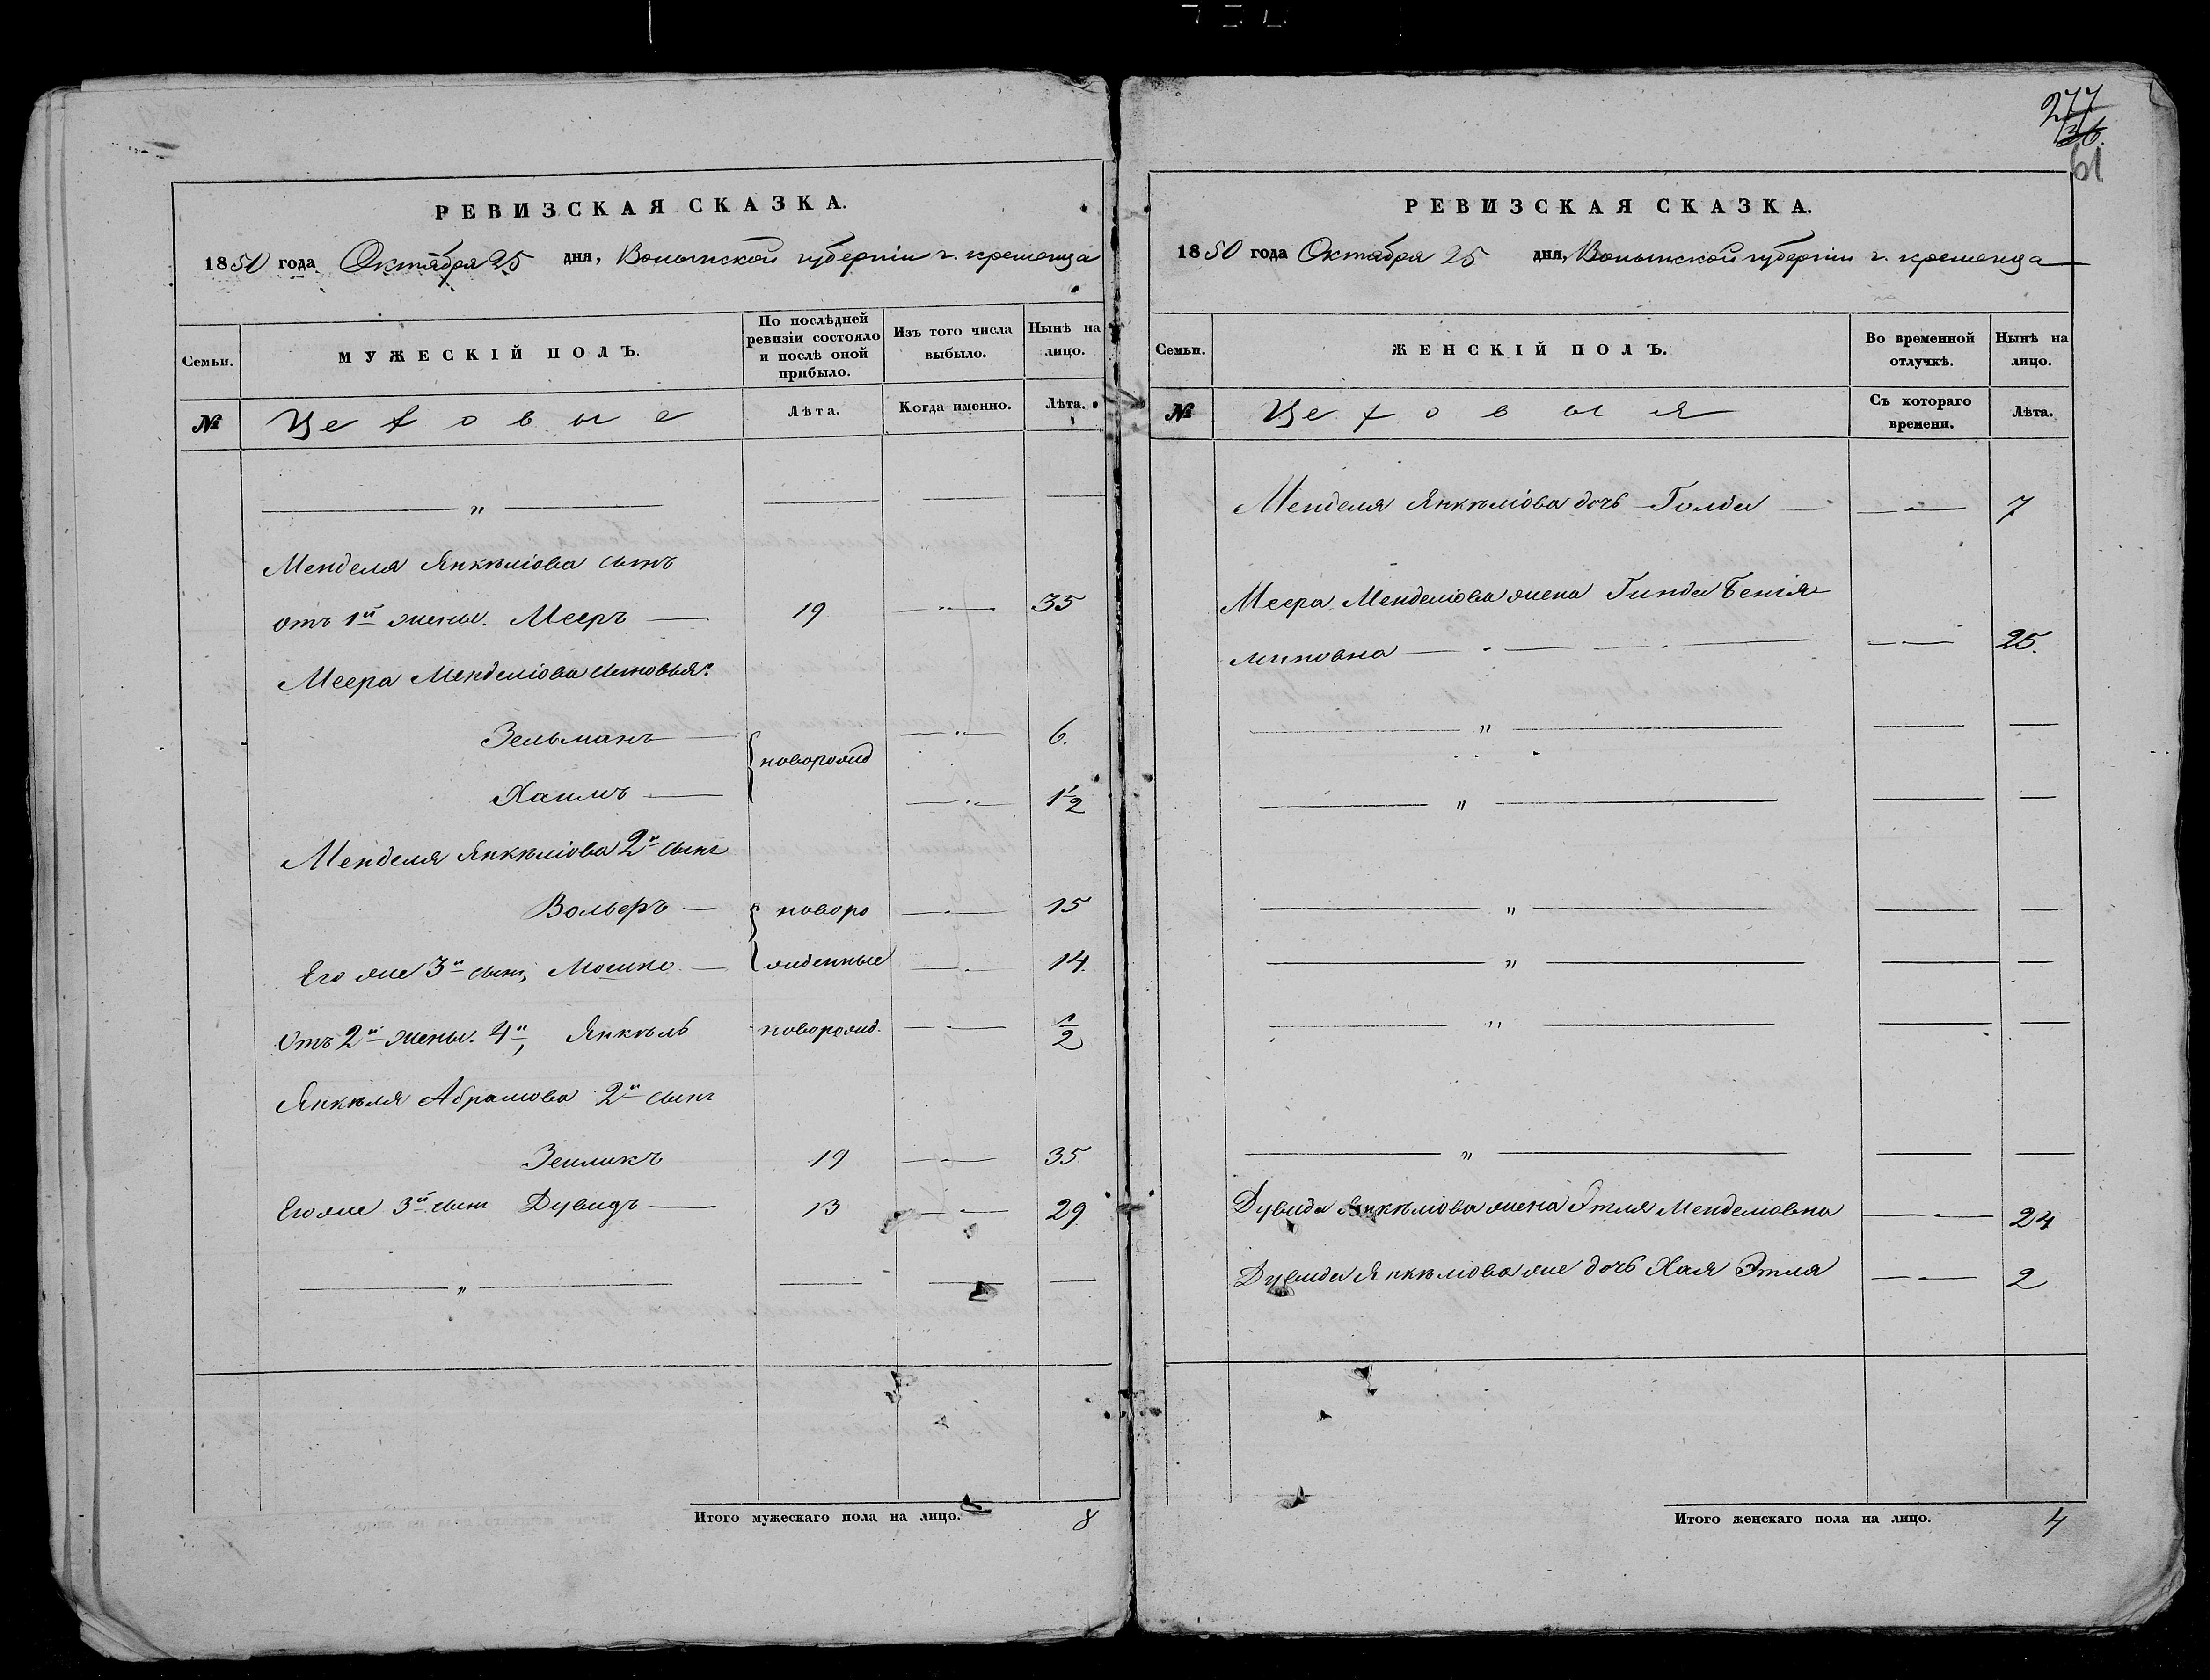 277
36.
61
РЕВИЗСКАЯ СКАЗКА.
1850 года Октября 25 дня, Волынской губерніи г. кременца
Семьи.
МУЖЕСКІЙ ПОЛЪ.
По послѣдней ревизіи состояло и послѣ оной прибыло.
Изъ того числа выбыло.
Нынѣ на лицо.
№
Цеховые
Лѣта.
Когда именно.
Лѣта.
"
Менделя Янкѣліова сынъ
отъ 1й жены. Мееръ 19 35
Меера Менделіова сыновья:
Зельманъ 6.
новорожд
Хаимъ 1 1/2
Менделя Янкѣліова 2й сынъ
Вольфъ новоро 15
Его же 3й сынъ, Мошко жденные 14.
Отъ 2й жены. 4й, Янкѣль новорожд. 1/2
Янкѣля Абрамова 2й сынъ
Зейликъ 19 35
Его же 3й сынъ Дувидъ 13 29
"
Итого мужескаго пола на лицо. 8
РЕВИЗСКАЯ СКАЗКА.
1850 года Октября 25 дня, Волынской губерніи г. кременца
Семьи.
ЖЕНСКІЙ ПОЛЪ.
Во временной отлучкѣ.
Нынѣ на лицо.
№
Цеховыя
Съ котораго времени.
Лѣта.
Менделя Янкѣліова дочь Голда 7
Меера Менделіова жена Гинда Бенія
миновна 25.
"
"
"
"
"
"
Дувида Янкѣліова жена Этля Менделіовна 24
Дувида Янкѣліова же дочь Хая Этля 2
Итого женскаго пола на лицо. 4